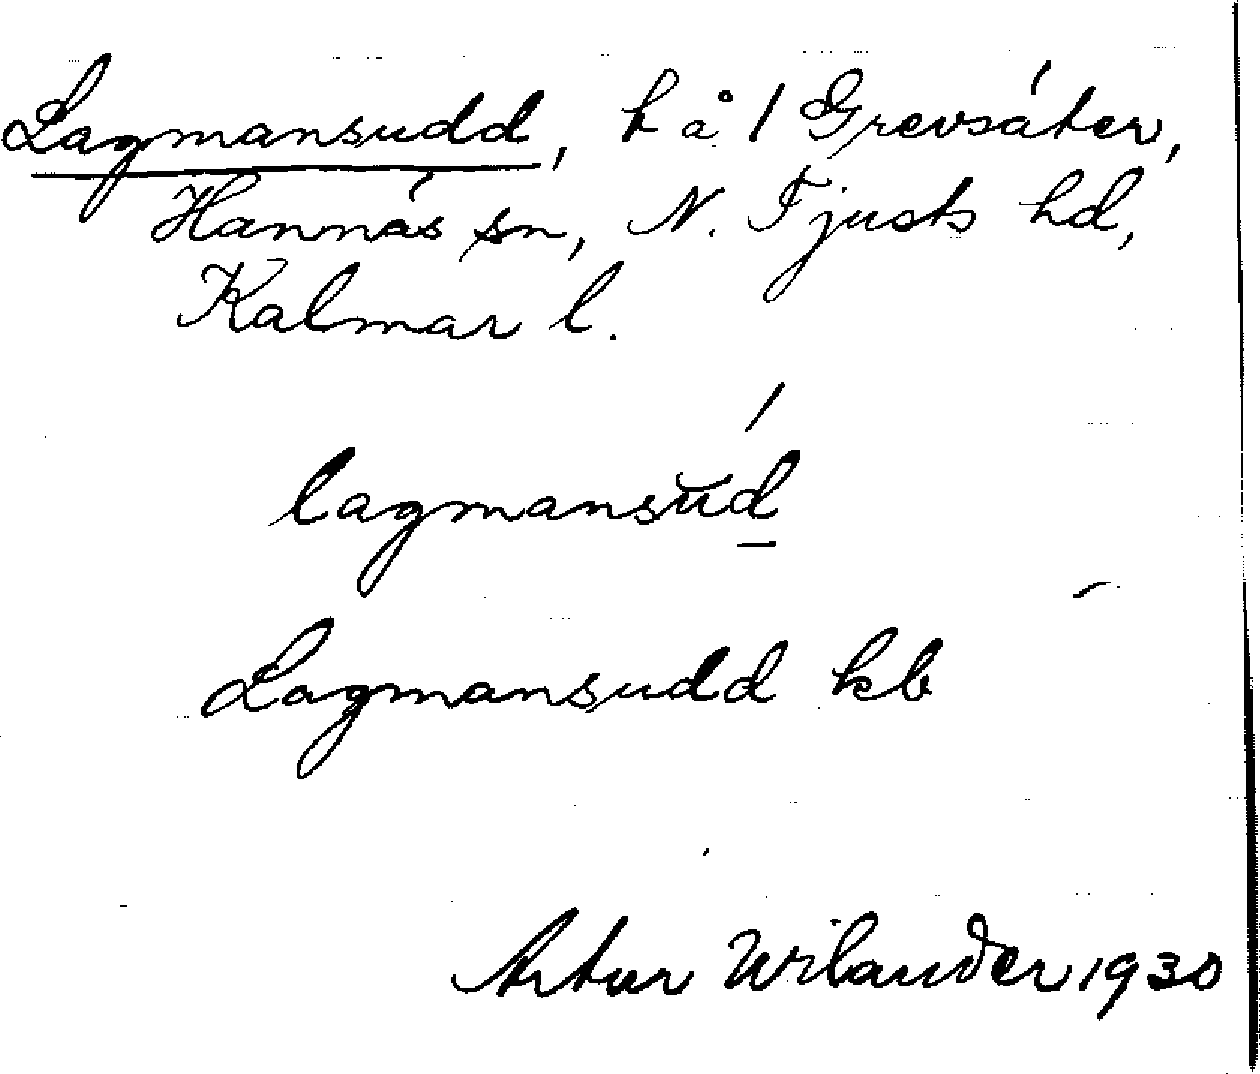 Lagmansudd, t å 1 Grevsäter,
Hannäs sn, N. Tjusts hd,
Kalmar l.
lagmansŭd̲
Lagmansudd kb
Artur Wilander 1930